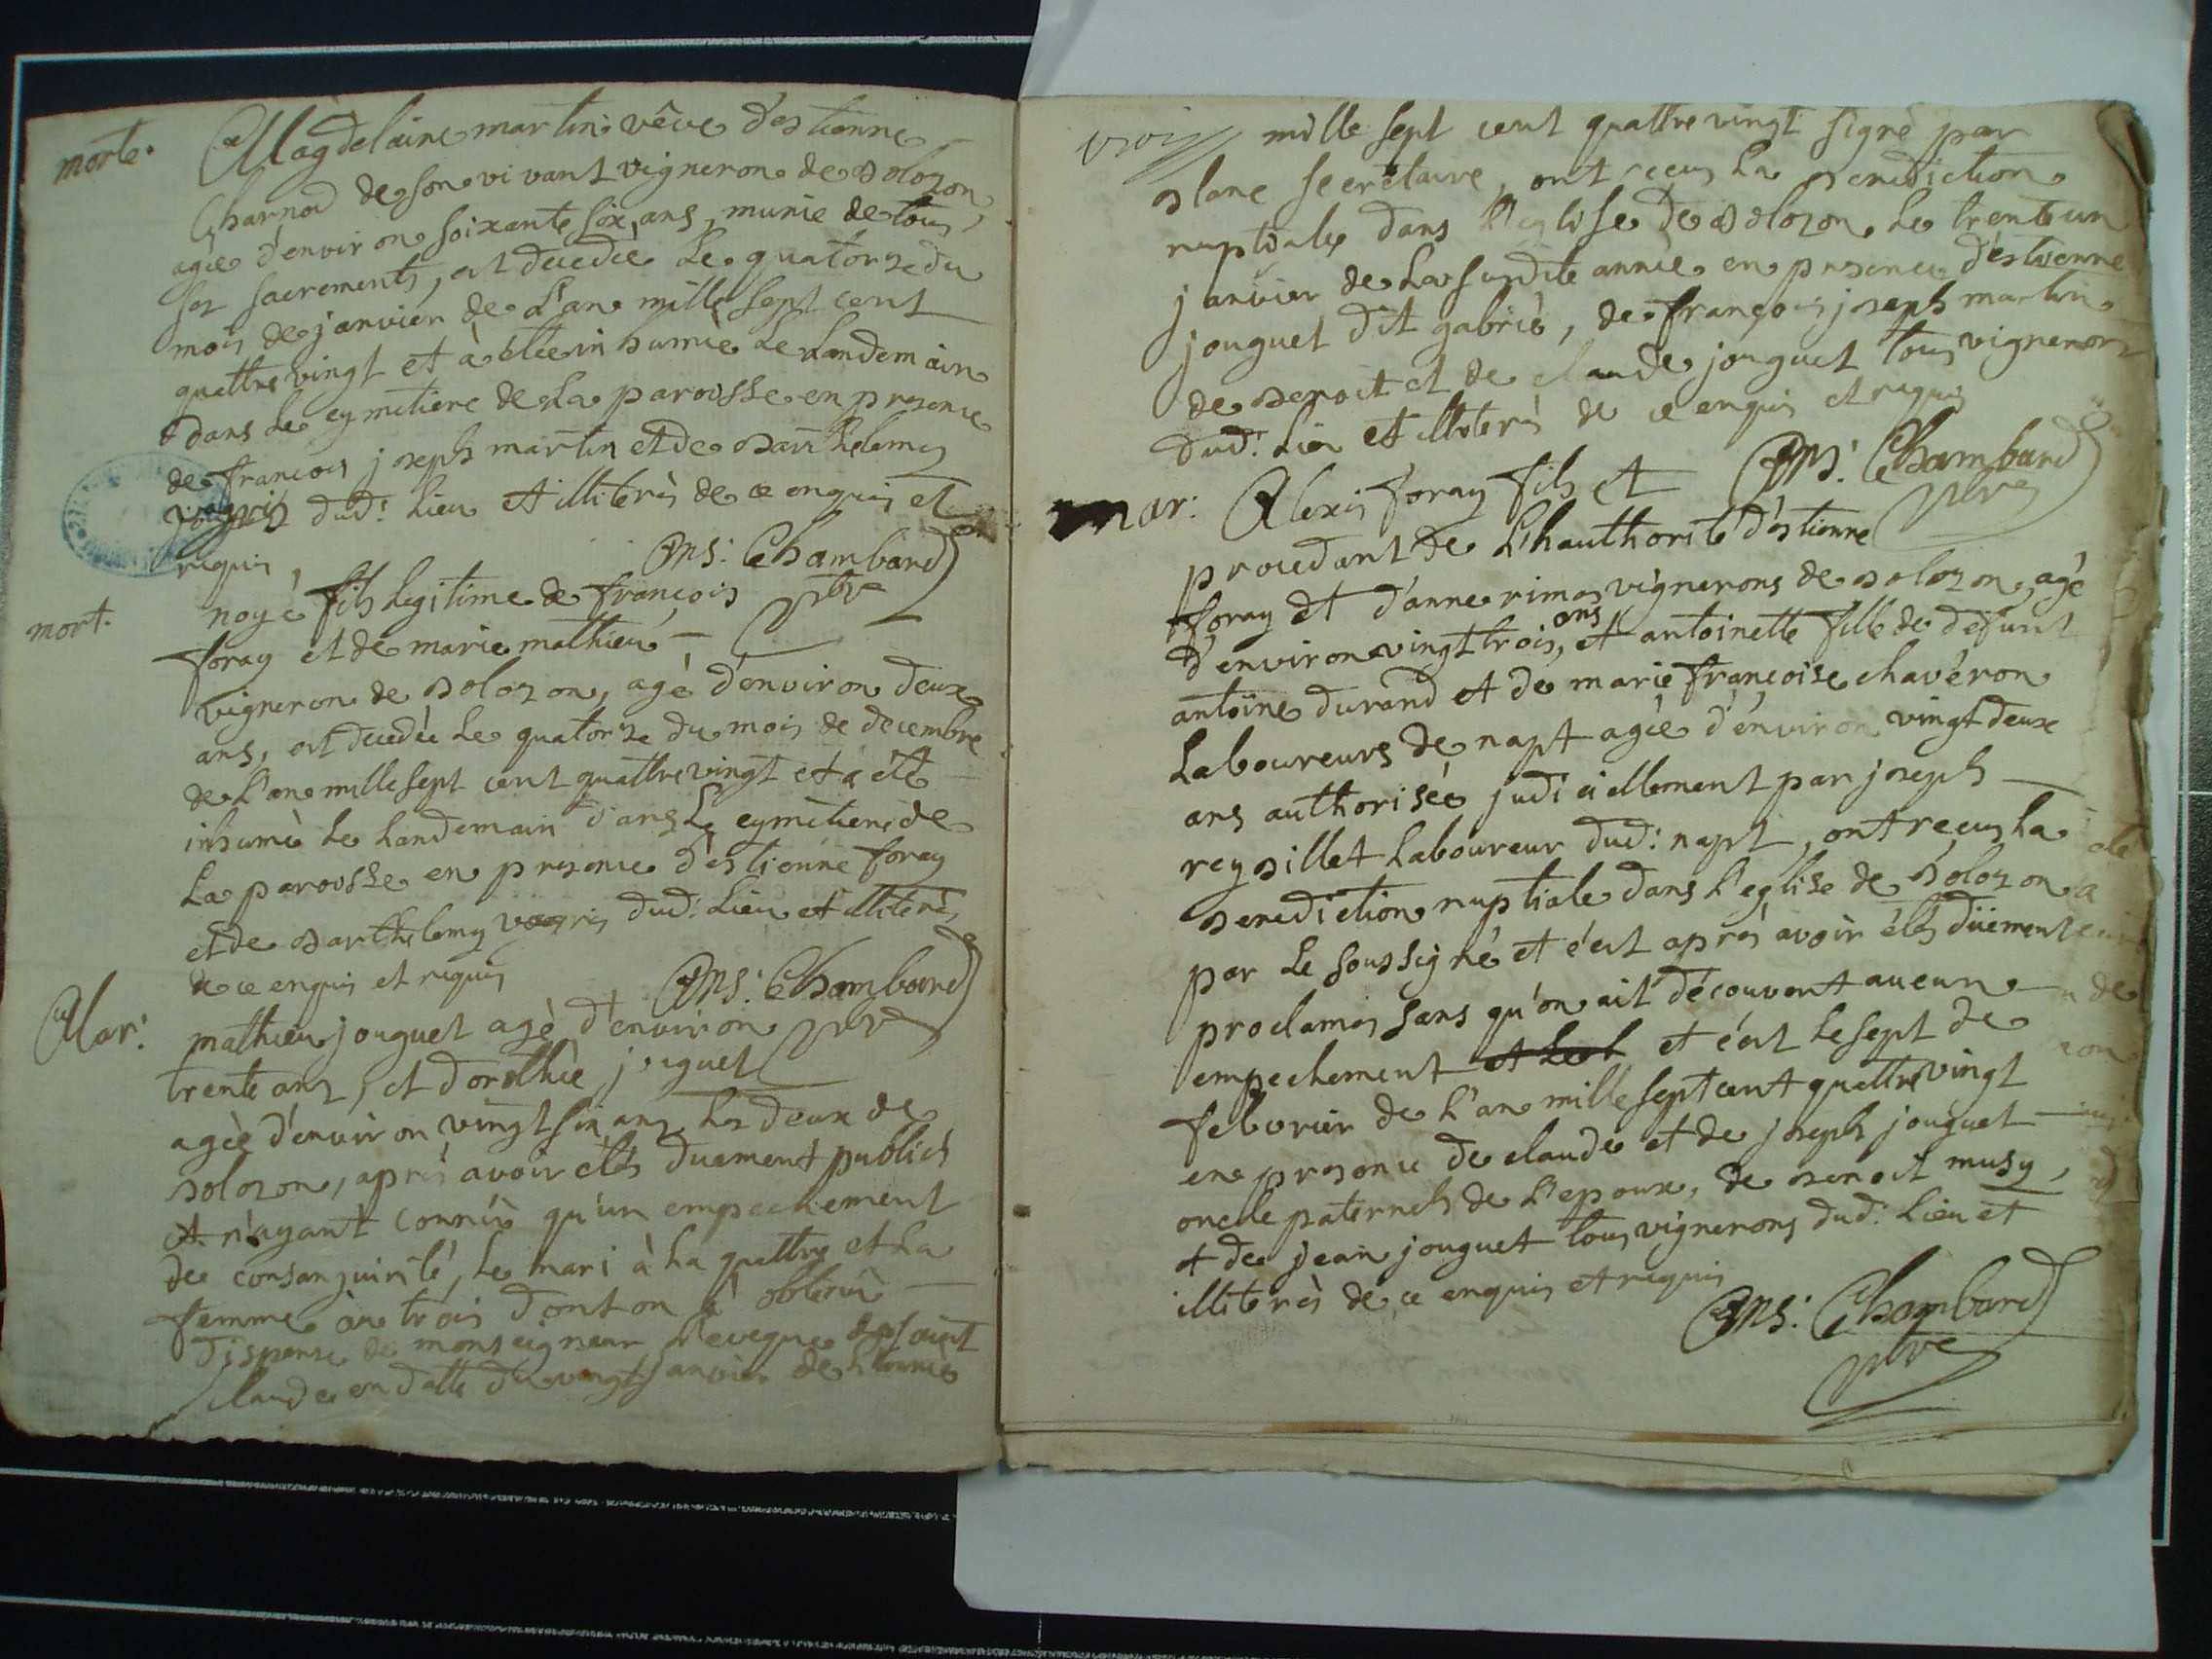 morte. Magdelaine martin vêve d'estienne
Charnod de son vivant vigneron de bolozon,
agée d'environ soixante six ans, munie de tous
ses sacrements, est decedée le quatorze du
mois de janvier de l'an mille sept cent
quattre vingt et à étée inhumée le landemain
dans le cymetiere de la paroisse en presence
de françois joseph martin et de barthelemy
dud: lieu et illiterés de ce enquis et
requis, Ms: Chambard
pbre
mort. noyé fils legitime de françois
foray et de marie mathieu
vigneron de bolozon, agé d'environ deux
ans, est decedée le quatorze du mois de decembre
de l'an mille sept cent quattre vingt et a été
inhumé le landemain dans le cymetiere de
la paroisse en presence d'estienne foray
et de barthelemy dud: lieu et illiterés
de ce enquis et requis Ms: Chambard
pbre
Mar: mathieu jouguet agé d'environ
trente ans, et dorothée jouguet
agée d'environ vingt six ans les deux de
bolozon, après avoir étés duement publiés
et n'ayant connû qu'un empechement
de consanguinité, le mari à la quattre et la
femme au trois dont on à obtenû
dispense de monseigneur l'eveque de saint
claude en datte du vingt janvier de l'année
mille sept cent quattre vingt signé par
blanc secretaire, ont recus la benediction
nuptiale dans l'eglise de bolozon le trente un
janvier de la susdite année en presence d'estienne
jouguet dit gabrié, de françois joseph martin
de benoit et de claude jouguet tous vignerons
dud: lieu et illiterés de ce enquis et requis
Ms: Chambard
pbre
mar: Alexis foray fils et
procedant de l'hauthorité d'estienne
foray et d'anne rimas vignerons de bolozon, agé
d'environ vingt trois ans, et antoinette fille de defunt
antoine durand et de marie françoise chavéron
laboureurs de napt agée d'environ vingt deux
ans authorisée judiciellement par joseph
reybillet laboureur dud: napt, ont reçus la
benediction nuptiale dans l'eglise de bolozon
par le soussigné et c'est après avoir étés düement
proclamés sans qu'on ait découvert aucun
empechement et c'est le sept de
febvrier de l'an mille sept cent quattre vingt
en presence de claude et de joseph jouguet
oncle paternels de l'epoux, de benoit musy,
et de jean jouguet tous vignerons dud: lieu et
illiterés de ce enquis et requis
Ms: Chambard
pbre